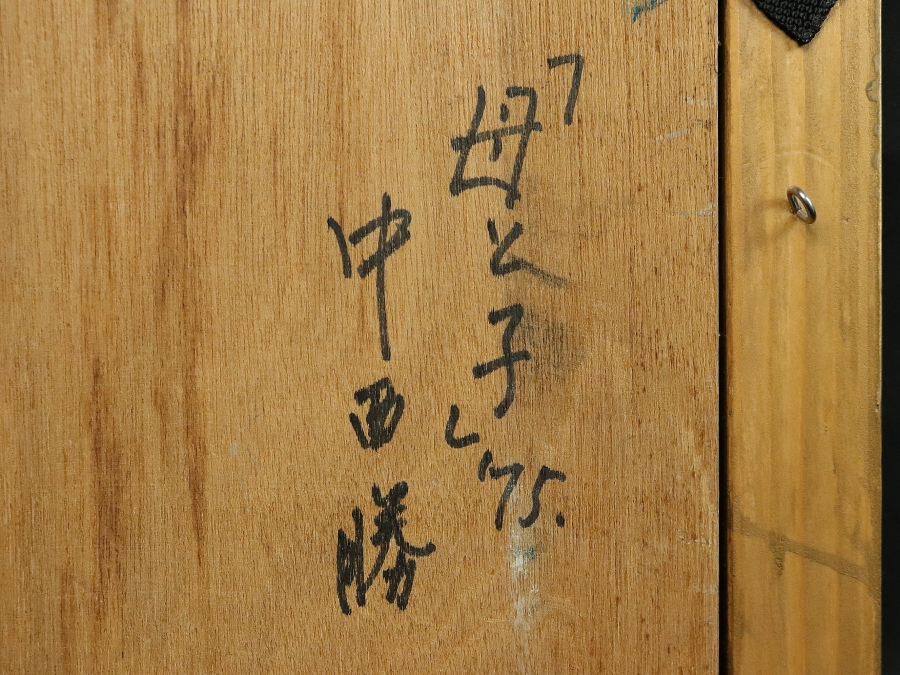 「母と子」'75.
中西勝